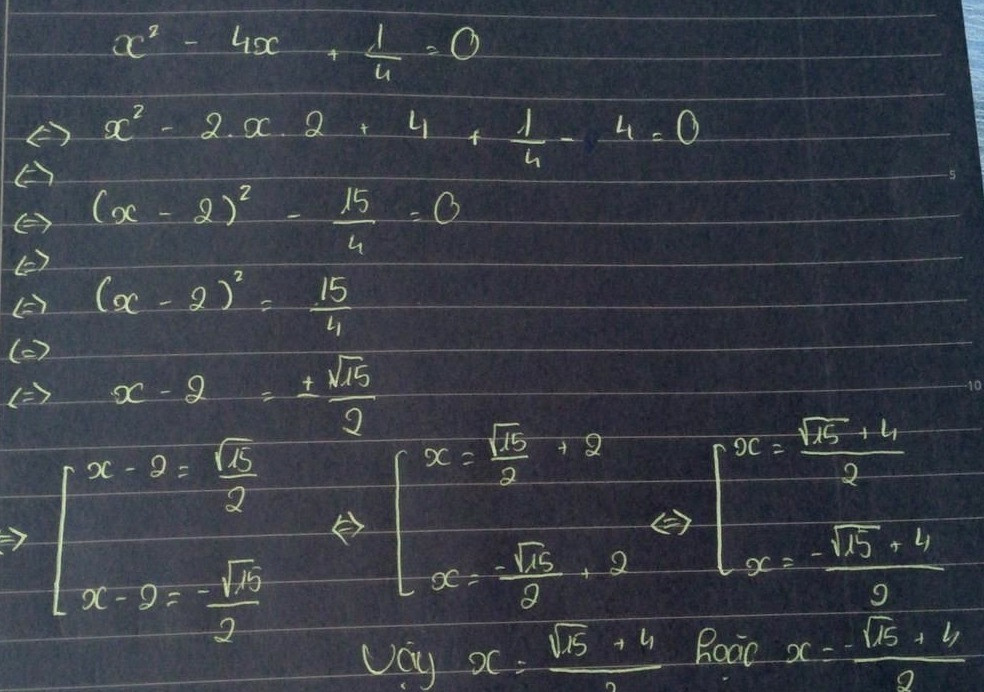 x² - 4x + 1/4 = 0
<=> x² - 2.x.2 + 4 + 1/4 - 4 = 0
<=>
5
<=> (x - 2)² - 15/4 = 0
<=>
<=> (x - 2)² = 15/4
<=>
<=> x - 2 = ±√15/2
10
<=> [ x - 2 = √15/2 <=> [ x = √15/2 + 2 <=> [ x = (√15 + 4)/2
x - 2 = -√15/2 x = -√15/2 + 2 x = -(√15 + 4)/2
Vậy x = (√15 + 4)/2 hoặc x = -(√15 + 4)/2